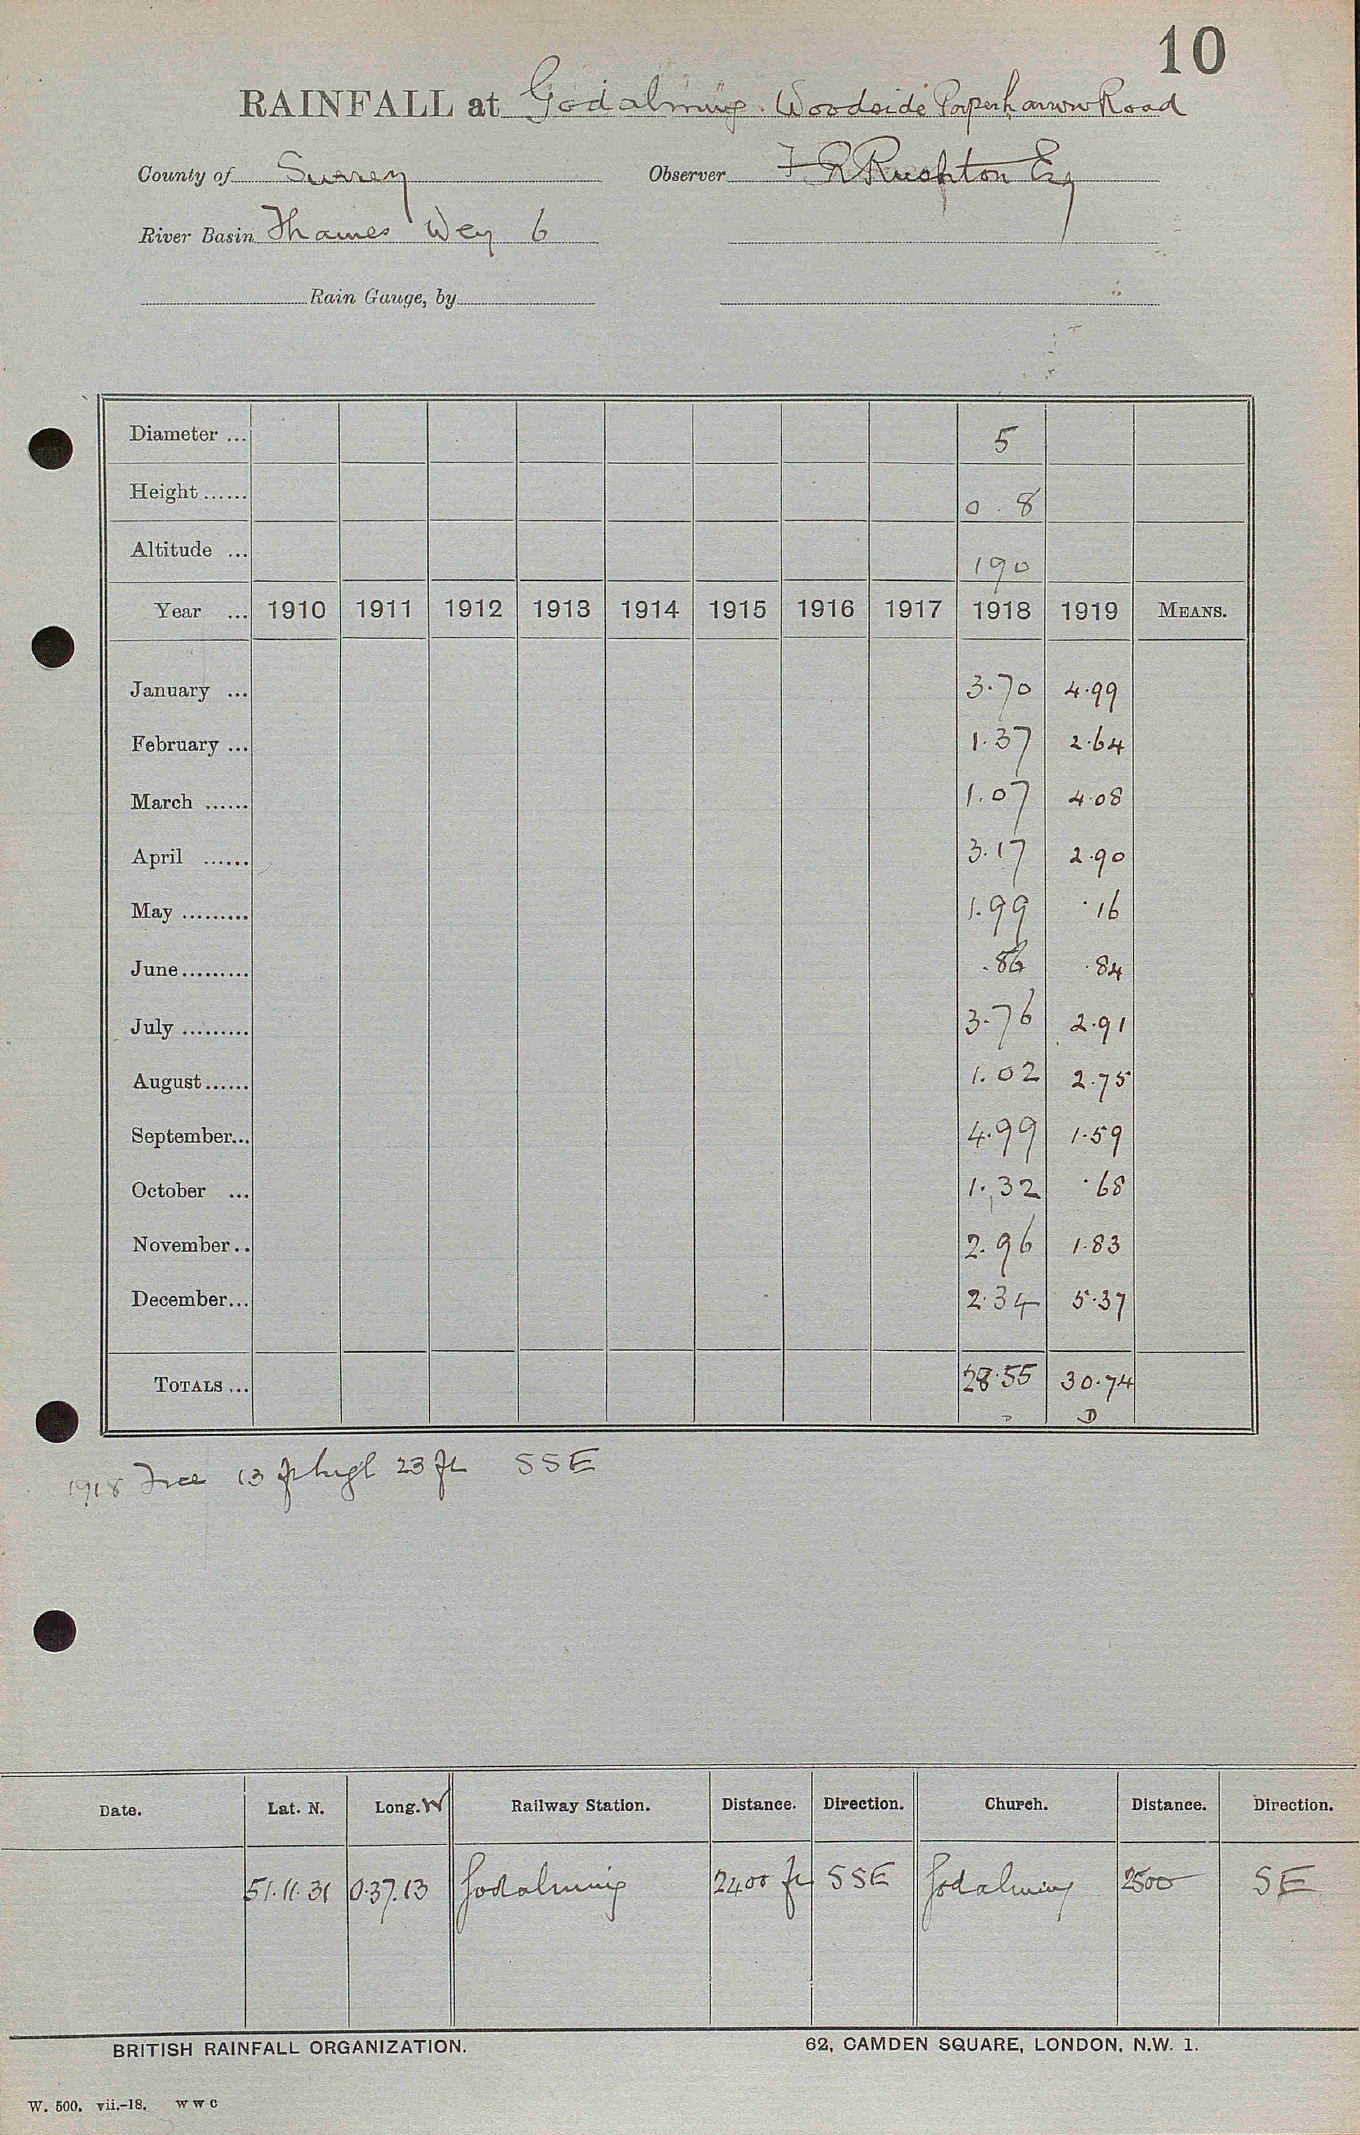 10
RAINFALL at Godalming. Woodside Peperharrow Road
County of Surrey Observer F R Rushton Esq
River Basin Thames Wey 6
Rain Gauge, by
Diameter ... 5
Height ...... 0.8
Altitude ... 190
Year ... 1910 1911 1912 1913 1914 1915 1916 1917 1918 1919 MEANS.
January ... 3.70 4.99
February ... 1.37 2.64
March ...... 1.07 4.08
April ...... 3.17 2.90
May ......... 1.99 .16
June ......... .86 .84
July ......... 3.76 2.91
August ...... 1.02 2.75
September... 4.99 1.59
October ... 1.32 .68
November .. 2.96 1.83
December... 2.34 5.37
TOTALS ... 28.55 30.74
D
1918 Tree 13 ft high 23 ft SSE
Date. Lat. N. Long. W Railway Station. Distance. Direction. Church. Distance. Direction.
51.11.31 0.37.13 Godalming 2400 ft SSE Godalming 2500 SE
BRITISH RAINFALL ORGANIZATION. 62, CAMDEN SQUARE, LONDON, N.W. 1.
W. 500. vii.-18. W W C